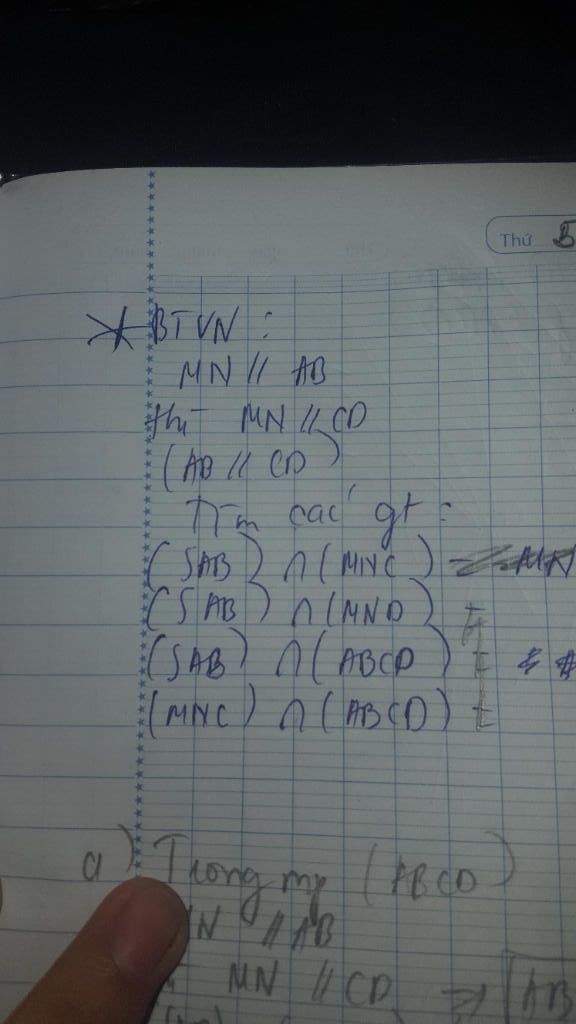 Thứ 5
BTVN :
MN // AB
thì MN // CD
(AB // CD)
Tìm các gt :
(SAB) ∩ (MNC) = MN
(SAB) ∩ (MND) =
(SAB) ∩ (ABCD) =
(MNC) ∩ (ABCD) =
a) Trong mp (ABCD)
N // AB
MN // CD ⇒ AB